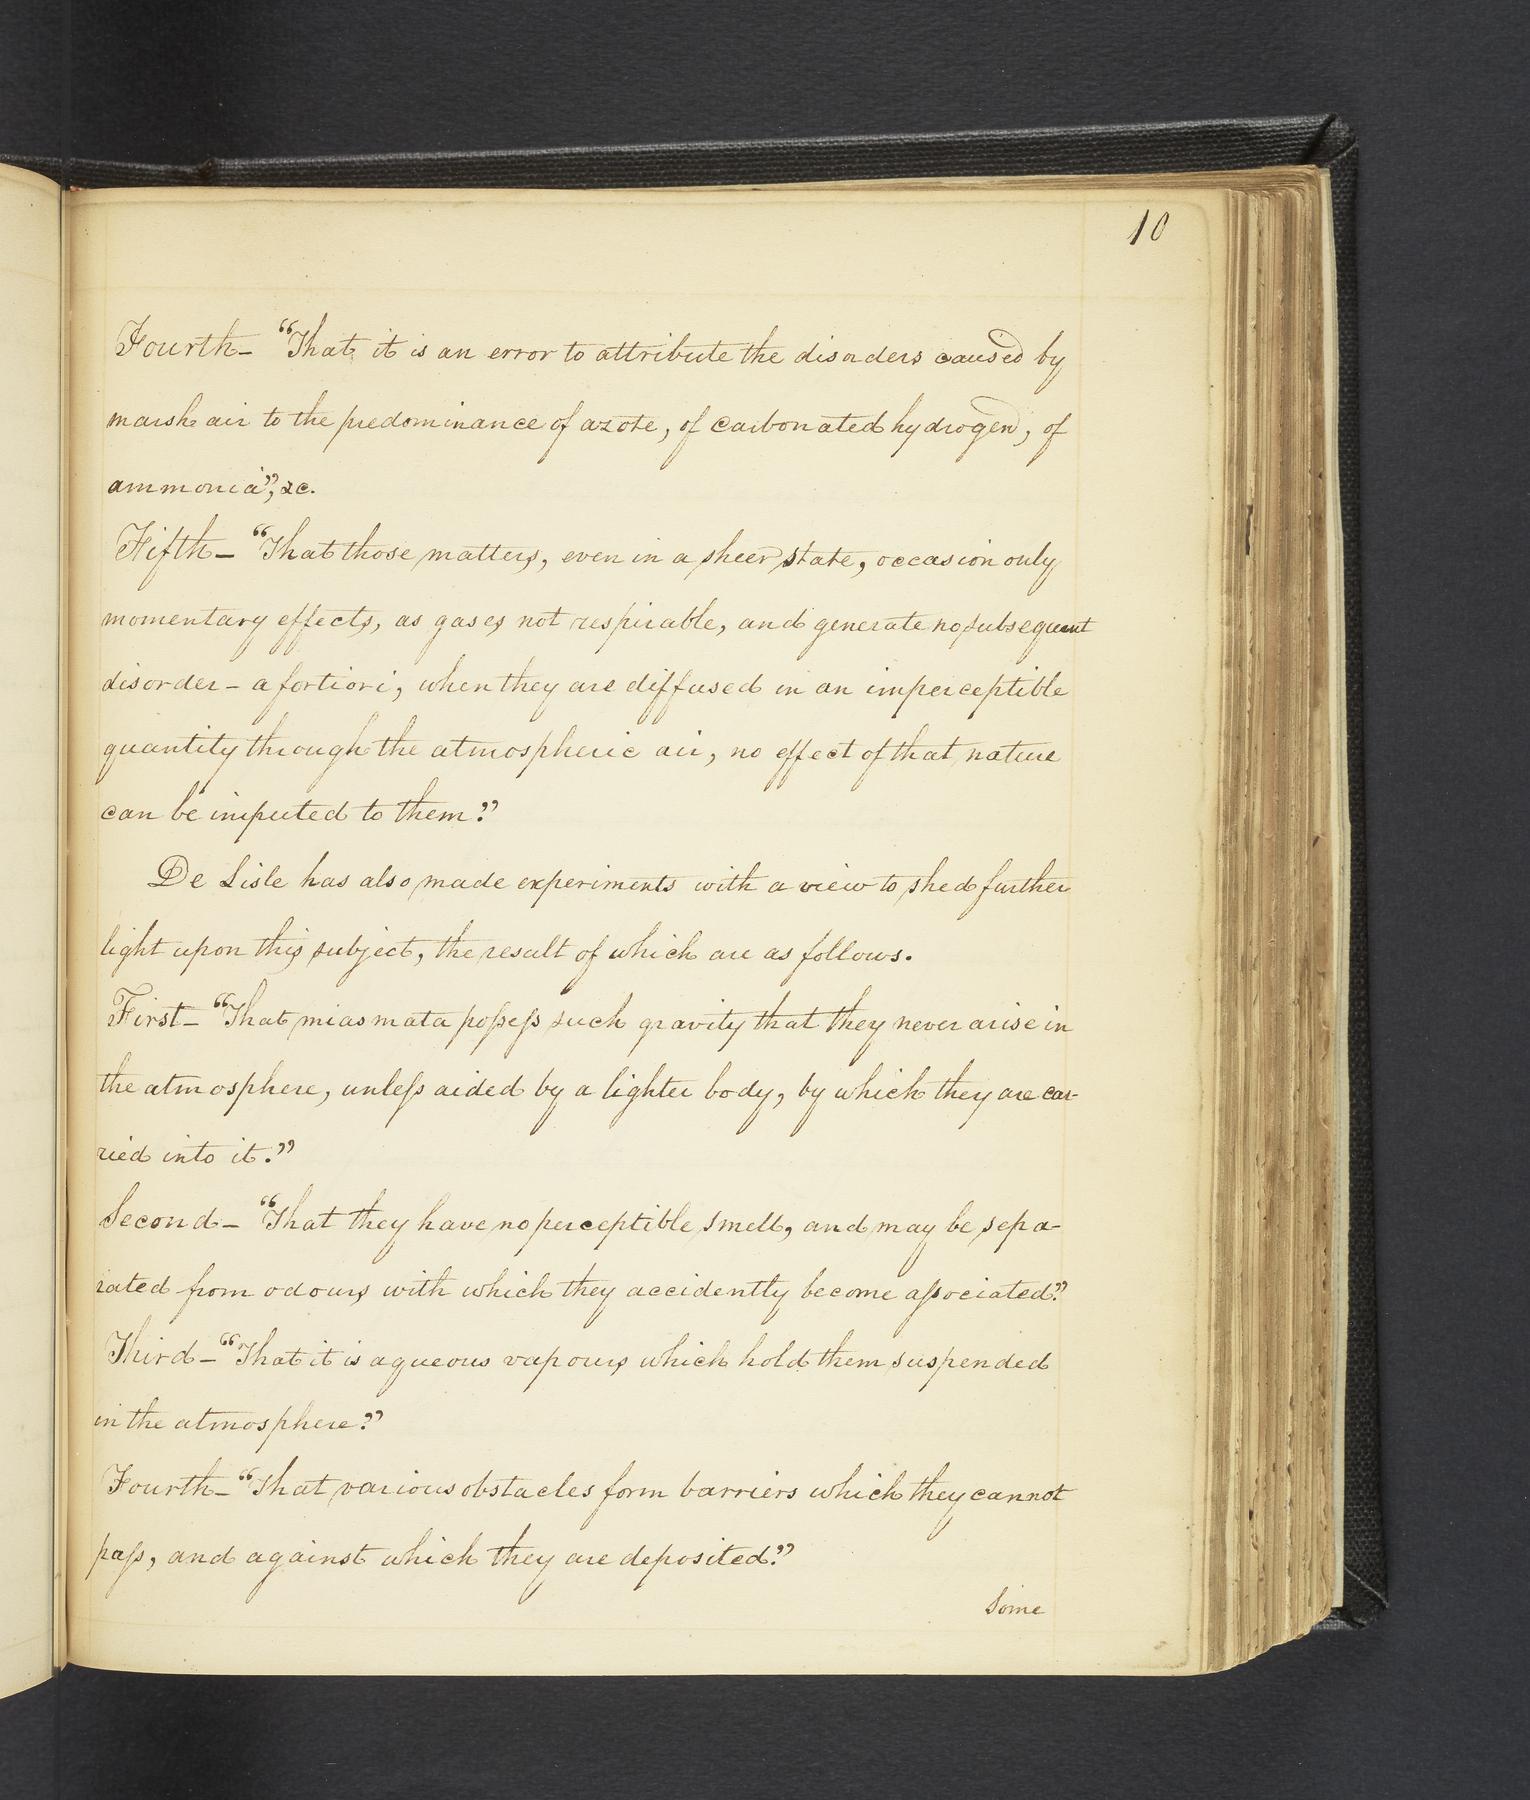 10
Fourth– “That it is an error to attribute the disorders caused by
marsh air to the predominance of azote, of carbonated hydrogen, of
ammonia”, &c.
Fifth– “That those matters, even in a sheer state, occasion only
momentary effects, as gases not respirable, and generate no subsequent
disorder – a fortiori, when they are diffused in an imperceptible
quantity through the atmospheric air, no effect of that nature
can be imputed to them.”
De Lisle has also made experiments with a view to shed further
light upon this subject, the result of which are as follows.
First– “That miasmata possess such gravity that they never arise in
the atmosphere, unless aided by a lighter body, by which they are car-
ried into it.”
Second– “That they have no perceptible smell, and may be sepa-
rated from odours with which they accidently become associated.”
Third– “That it is aqueous vapours which hold them suspended
in the atmosphere.”
Fourth– “That various obstacles form barriers which they cannot
pass, and against which they are deposited.”
Some